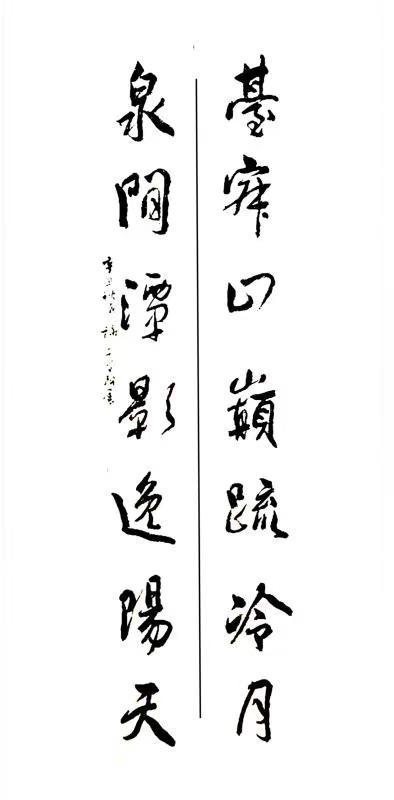 臺寂山巔疏冷月
泉閒潭影逸陽天